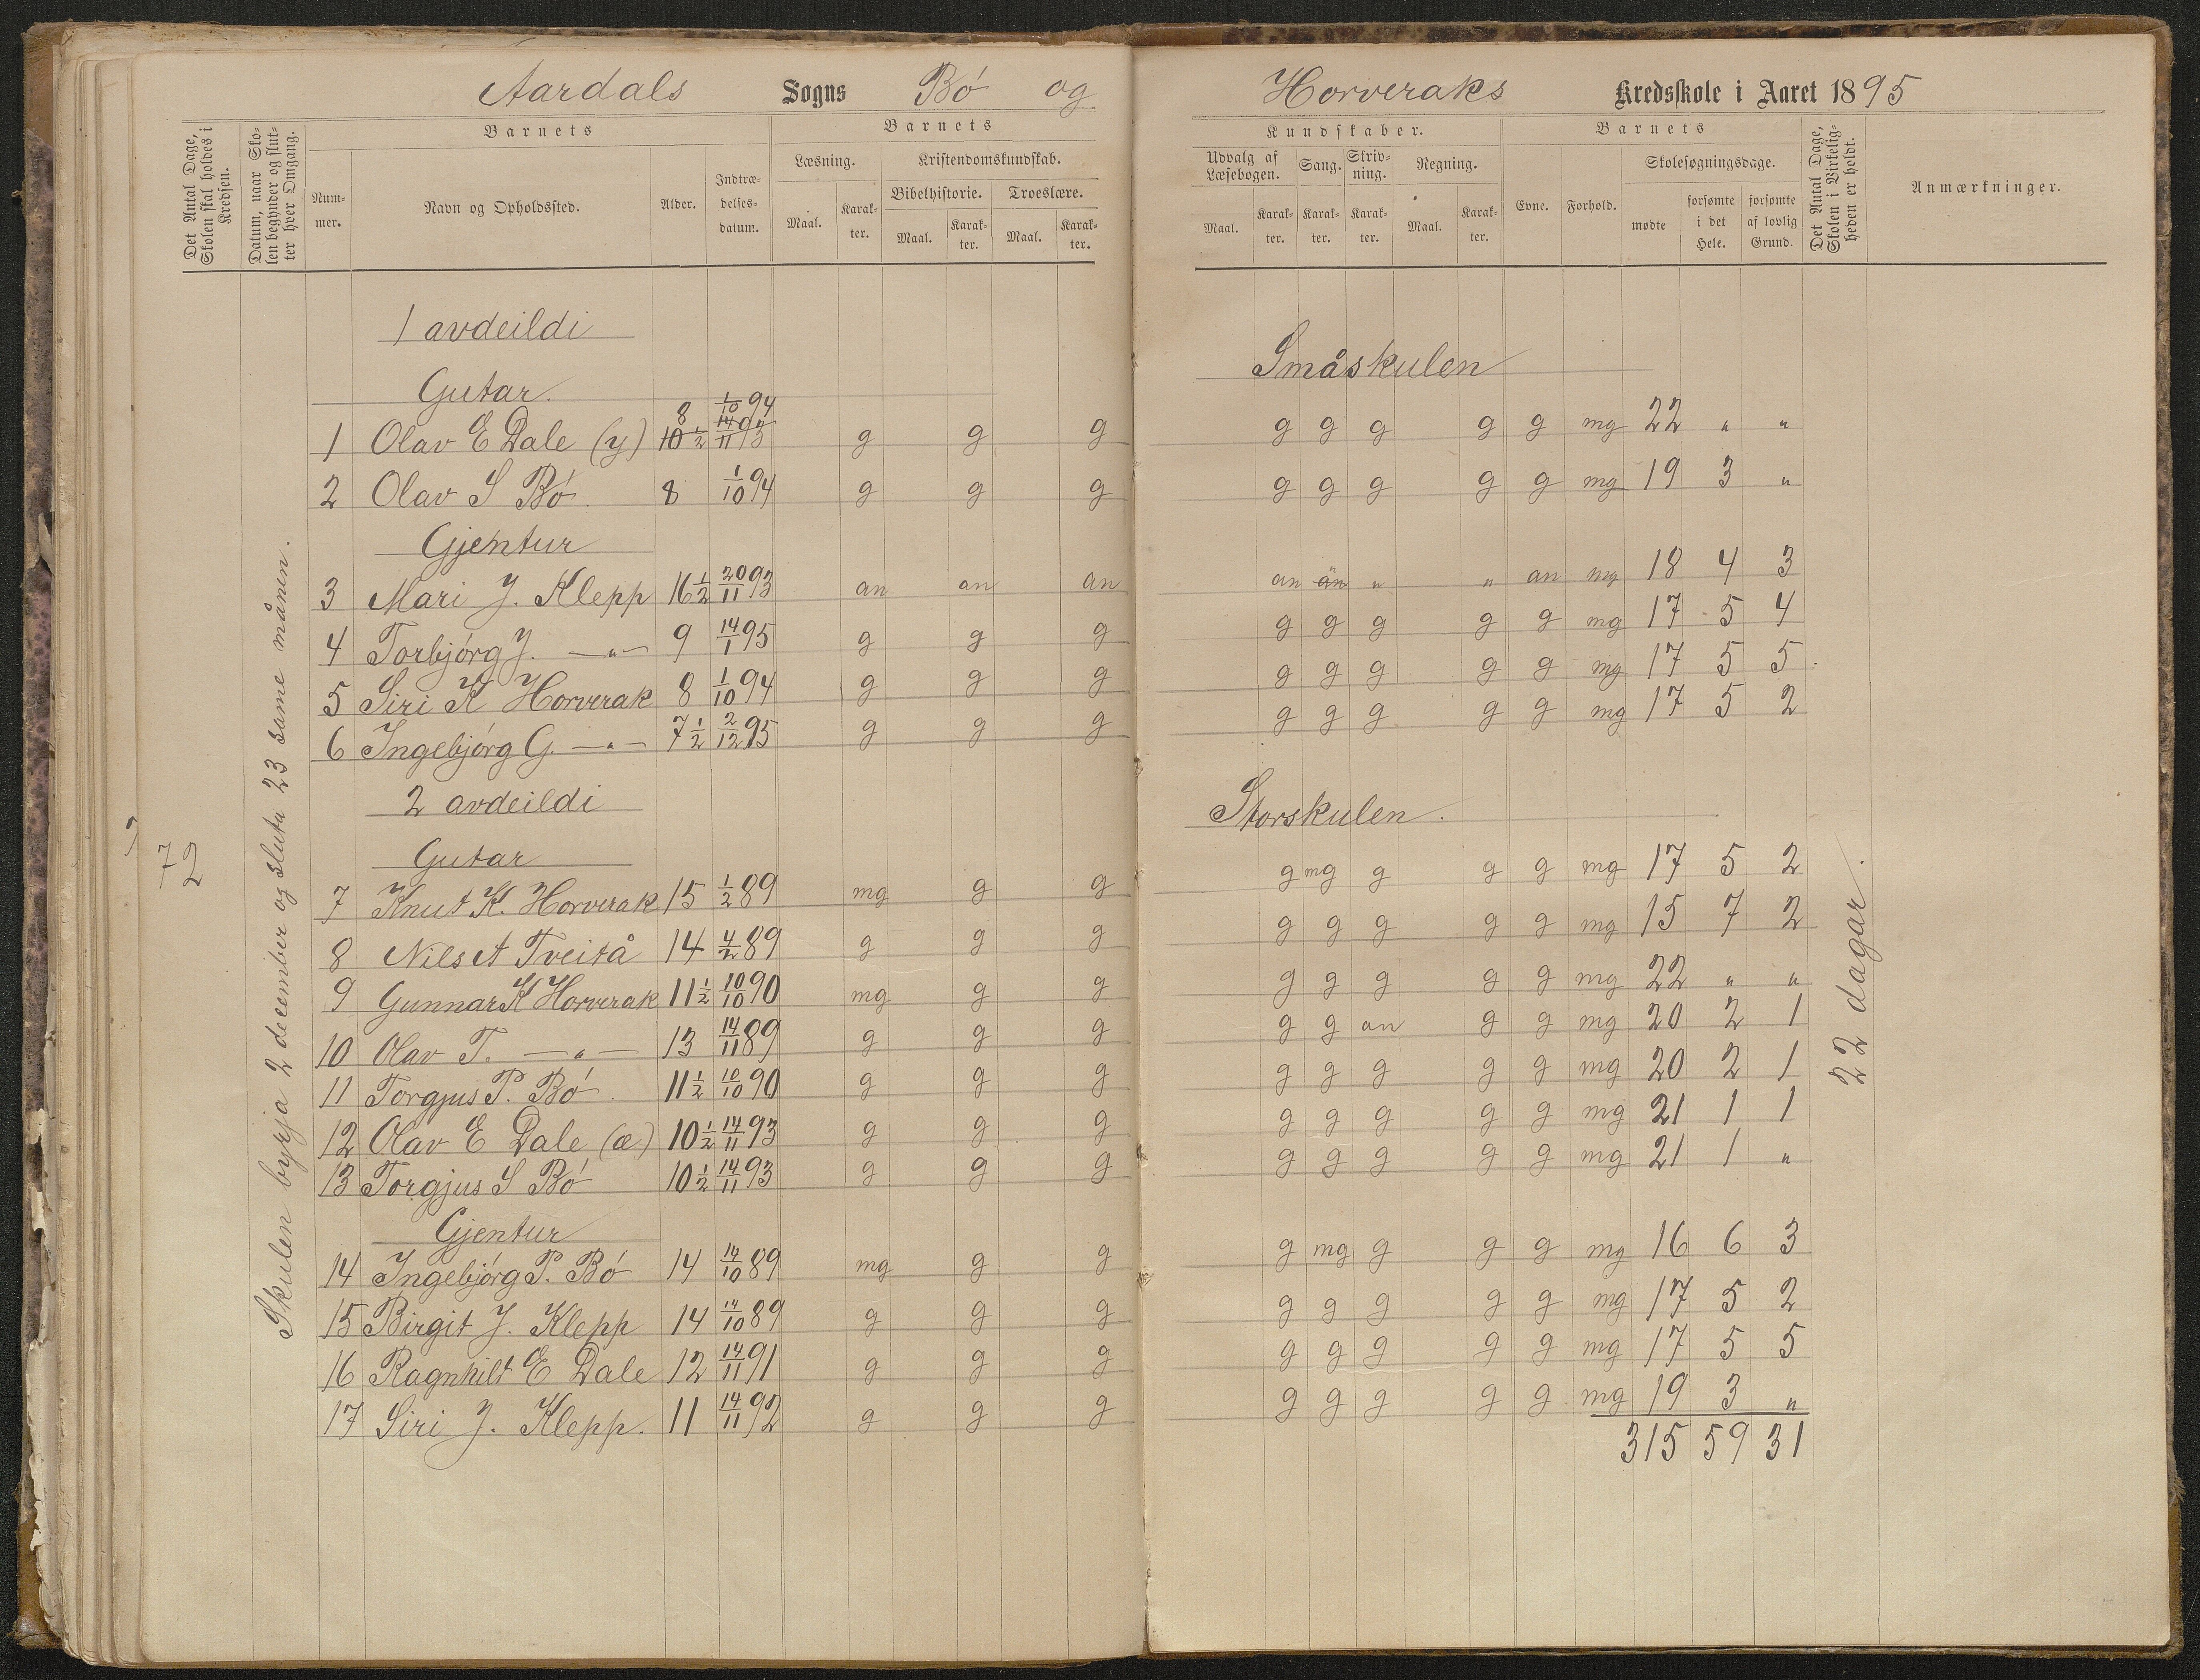 Aardals Sogns Bø og Horveraks Kredsskole i Aaret 1895
Det Antal Dage, Skolen skal holdes i Kredsen.
Datum, naar Skolen begynder og slutter hver Omgang.
Barnets
Nummer.
Navn og Opholdssted.
Alder.
Indtrædelsesdatum.
Barnets
Læsning.
Maal.
Karakter.
Kristendomskundskab.
Bibelhistorie.
Maal.
Karakter.
Troeslære.
Maal.
Karakter.
Kundskaber.
Udvalg af Læsebogen.
Maal.
Karakter.
Sang.
Karakter.
Skrivning.
Karakter.
Regning.
Maal.
Karakter.
Barnets
Evne.
Forhold.
Skolesøgningsdage.
mødte
forsømte i det Hele.
forsømte af lovlig Grund.
Det Antal Dage, Skolen i Virkeligheden er holdt.
Anmærkninger.
72
Skulen byrja 2 december og sluta 23 same månen.
1 avdeildi Småskulen
Gutar.
1 Olav E Dale (y) 8 1/10 94 10 1/2 14/11 93 g g g g g g g g mg 22 " "
2 Olav S Bø 8 1/10 94 g g g g g g g g mg 19 3 "
Gjentur
3 Mari J. Klepp 16 1/2 20/11 93 an an an an an " " an mg 18 4 3
4 Torbjørg J. —"— 9 14/1 95 g g g g g g g g mg 17 5 4
5 Siri K Horverak 8 1/10 94 g g g g g g g g mg 17 5 5
6 Ingebjørg G. —"— 7 1/2 2/12 95 g g g g g g g g mg 17 5 2
2 avdeildi Storskulen.
Gutar
7 Knut K. Horverak 15 1/2 89 mg g g g mg g g g mg 17 5 2
8 Nils A Tveitå 14 4/2 89 g g g g g g g g mg 15 7 2
9 Gunnar K Horverak 11 1/2 10/10 90 mg g g g g g g g mg 22 " "
10 Olav T. —"— 13 14/11 89 g g g g g an g g mg 20 2 1
11 Torgjus P. Bø 11 1/2 10/10 90 g g g g g g g g mg 20 2 1
12 Olav E Dale (æ) 10 1/2 14/11 93 g g g g g g g g mg 21 1 1
13 Torgjus S Bø 10 1/2 14/11 93 g g g g g g g g mg 21 1 "
Gjentur
14 Ingebjørg P. Bø 14 14/10 89 mg g g g mg g g g mg 16 6 3
15 Birgit J. Klepp 14 14/10 89 g g g g g g g g mg 17 5 2
16 Ragnhilt E Dale 12 14/11 91 g g g g g g g g mg 17 5 5
17 Siri J. Klepp. 11 14/11 92 g g g g g g g g mg 19 3 "
315 59 31
22 dagar.